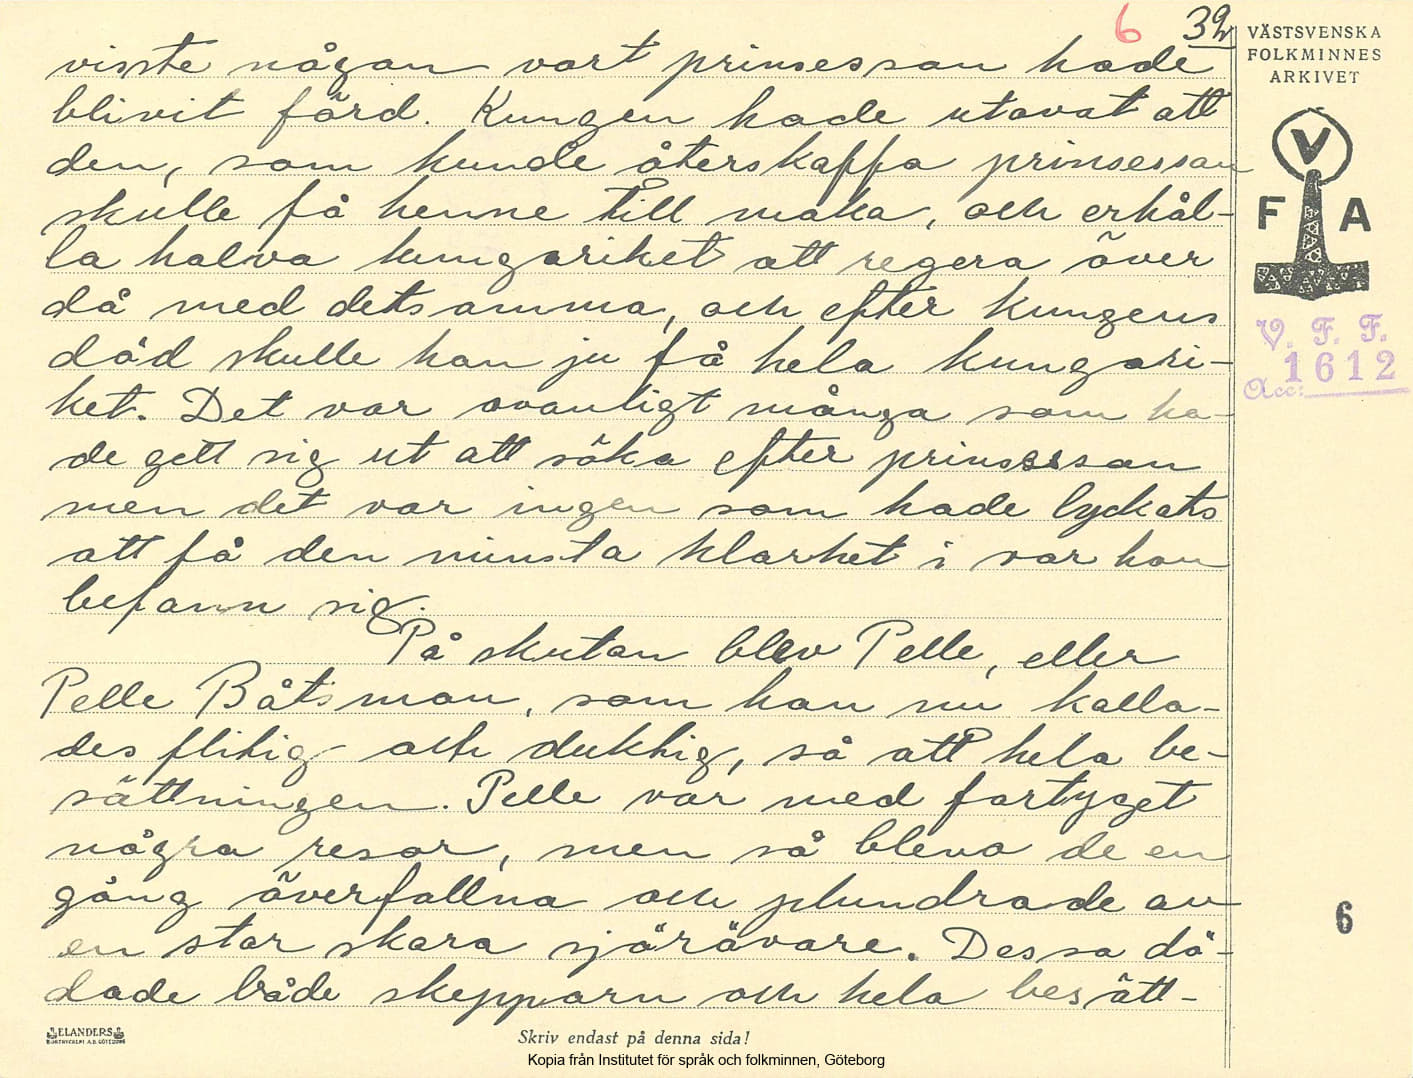 6 39
visste någon vart prinsessan hade
blivit förd. Kungen hade utovat att
den, som kunde återskaffa prinsessan
skulle få henne till maka, och erhål-
la halva kungariket att regera över
då med detsamma, och efter kungens
död skulle han ju få hela kungari-
ket. Det var ovanligt många som ha-
de gett sig ut att söka efter prinsessan
men det var ingen som hade lyckats
att få den minsta klarhet i var hon
befann sig.
På skutan blev Pelle, eller
Pelle Båtsman, som han nu kalla-
des flitig och duktig, så att hela be-
sättningen. Pelle var med fartyget
några resor, men så blevo de en
gång överfallna och plundrade av
en stor skara sjörövare. Dessa dö-
dade både skepparn och hela besätt-
VÄSTSVENSKA
FOLKMINNES
ARKIVET
V
F A
V. F. F.
Acc: 1612
6
ELANDERS
Skriv endast på denna sida!
Kopia från Institutet för språk och folkminnen, Göteborg